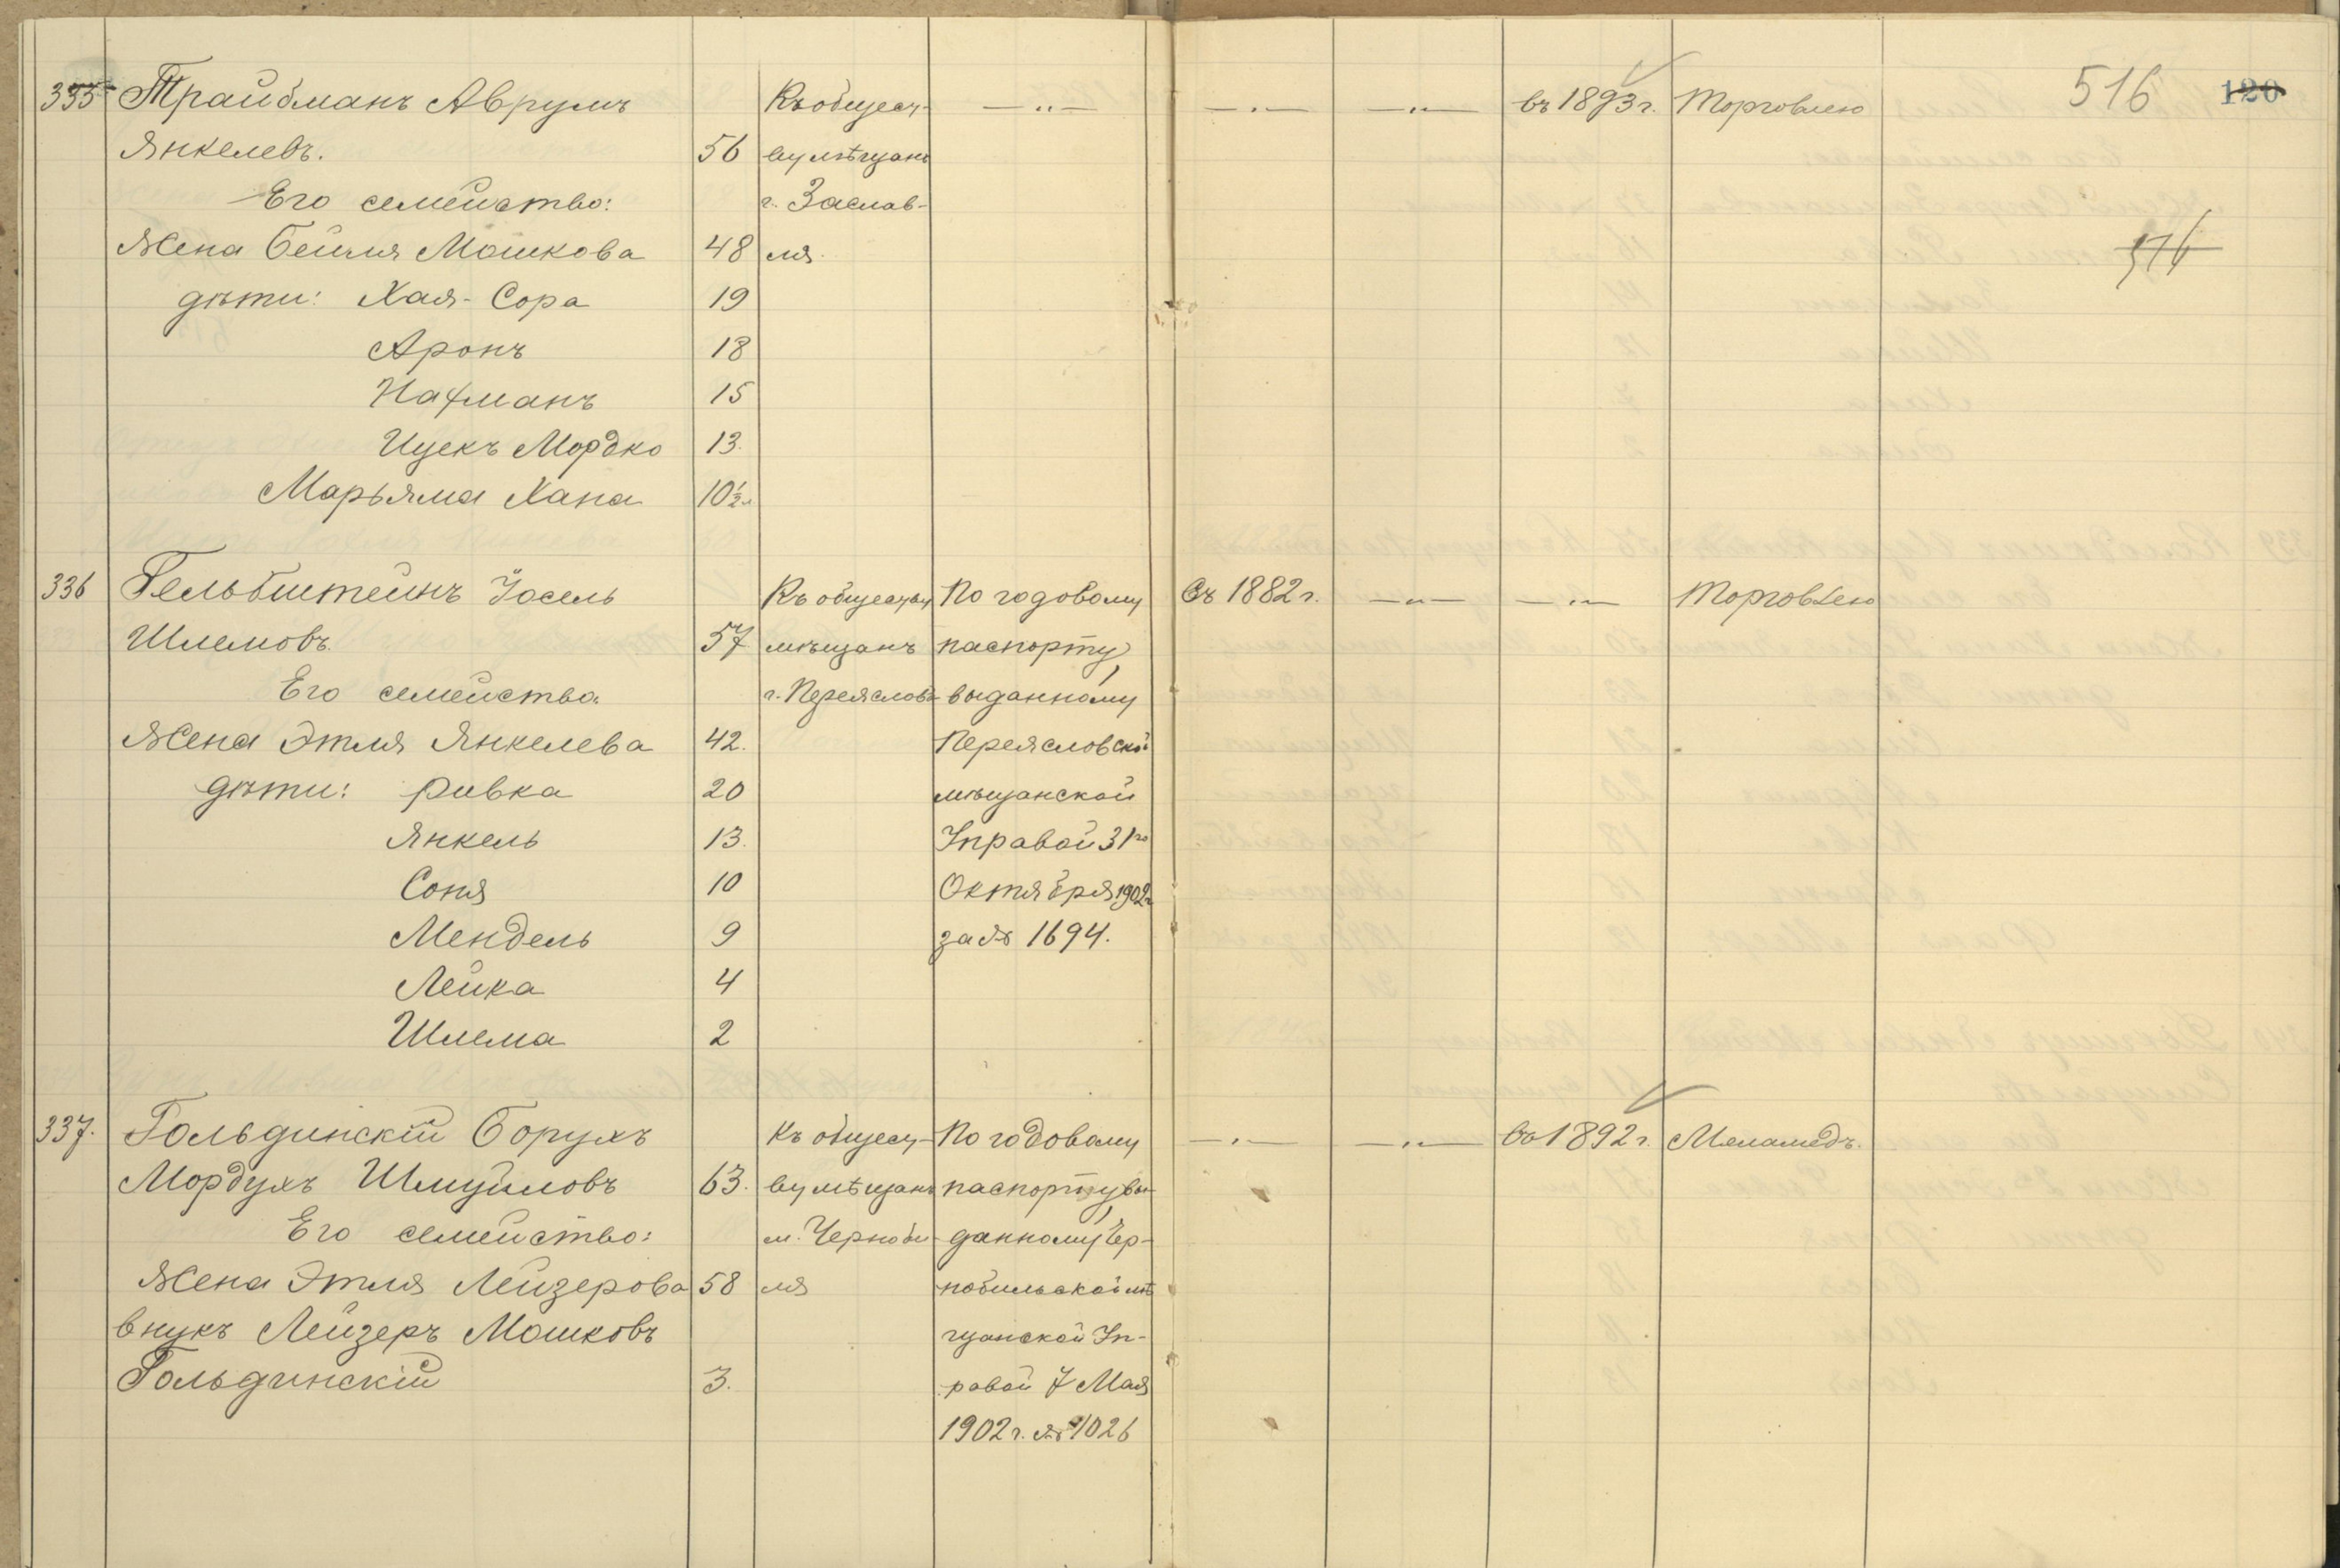 516 120
335 Трайбманъ Аврумъ Къ общест- —„— —„— —„— въ 1893 г. Торговлею
Янкелевъ. 56 ву мѣщанъ
Его семейство: г. Заслав-
Жена Бейля Мошкова 48 ля
516
дѣти: Хая-Сора 19
Аронъ 18
Нафманъ 15
Ицекъ Мордко 13.
Марьяма Хана 10½
336 Гельбштейнъ Іосель Къ обществу По годовому Съ 1882 г. —„— —„— Торговлею
Шлемовъ. 57 мѣщанъ паспорту,
Его семейство. г. Переяслова выданному
Жена Этля Янкелева 42. Переясловской
дѣти: Ривка 20 мѣщанской
Янкель 13. Управой 31го
Соня 10 Октября 1902 г.
Мендель 9 за № 1694.
Лейка 4
Шлема 2
337. Гольдинскій Борухъ Къ общест- По годовому —„— —„— Въ 1892 г. Меламедъ.
Мордухъ Шмуйловъ 63. ву мѣщанъ паспорту, вы-
Его семейство: м. Чернобы- данному Чер-
Жена Этля Лейзерова 58 ля нобильской мѣ
внукъ Лейзеръ Мошковъ щанской Уп-
Гольдинскій 3. равой 7 Мая
1902 г. № 1026